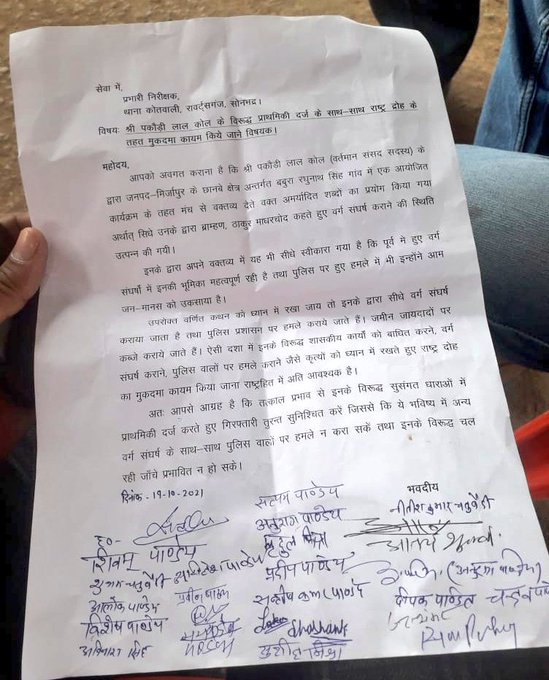 सेवा में,
प्रभारी निरीक्षक,
थाना कोतवाली, रावर्ट्सगंज, सोनभद्र।
विषयः श्री पकौड़ी लाल कोल के विरूद्ध प्राथमिकी दर्ज के साथ-साथ राष्ट्र द्रोह के
तहत मुकदमा कायम किये जाने विषयक।
महोदय,
आपको अवगत कराना है कि श्री पकौड़ी लाल कोल (वर्तमान संसद सदस्य) के
द्वारा जनपद-मिर्जापुर के छानबे क्षेत्र अन्तर्गत बबुरा रघुनाथ सिंह गांव में एक आयोजित
कार्यक्रम के तहत मंच से वक्तव्य देते वक्त अमर्यादित शब्दों का प्रयोग किया गया
अर्थात् सिधे उनके द्वारा ब्राम्हण, ठाकुर माधरचोद कहते हुए वर्ग संघर्ष कराने की स्थिति
उत्पन्न की गयी।
इनके द्वारा अपने वक्तव्य में यह भी सीधे स्वीकारा गया है कि पूर्व मे हुए वर्ग
संघर्षो में इनकी भूमिका महत्वपूर्ण रही है तथा पुलिस पर हुए हमले में भी इन्होंने आम
जन-मानस को उकसाया है।
उपरोक्त वर्णित कथन को ध्यान में रखा जाय तो इनके द्वारा सीधे वर्ग संघर्ष
कराया जाता है तथा पुलिस प्रशासन पर हमले कराये जाते हैं। जमीन जायदादों पर
कब्जे कराये जाते है। ऐसी दशा में इनके विरूद्ध शासकीय कार्यो को बाधित करने, वर्ग
संघर्ष कराने, पुलिस वालों पर हमले कराने जैसे कृत्यों को ध्यान में रखते हुए राष्ट्र दोह
का मुकदमा कायम किया जाना राष्ट्रहित में अति आवश्यक है।
अतः आपसे आग्रह है कि तत्काल प्रभाव से इनके विरूद्ध सुसंगत धाराओं में
प्राथमिकी दर्ज करते हुए गिरफ्तारी तुरन्त सुनिश्चित करें जिससे कि ये भविष्य में अन्य
वर्ग संघर्ष के साथ-साथ पुलिस वालों पर हमले न करा सकें तथा इनके विरूद्ध चल
रही जाँचे प्रभावित न हो सके।
दिनांक-19-10-2021
भवदीय
सत्यम पाण्डेय
नीतीश कुमार चतुर्वेदी
अनुराग पाण्डेय
शिवम् पाण्डेय
प्रदीप पाण्डेय
शुभम चतुर्वेदी
आलोक पाण्डेय
प्रवीन पाण्डेय
दीपक पाण्डेय
विशेष पाण्डेय
Shashank
अविनाश सिंह